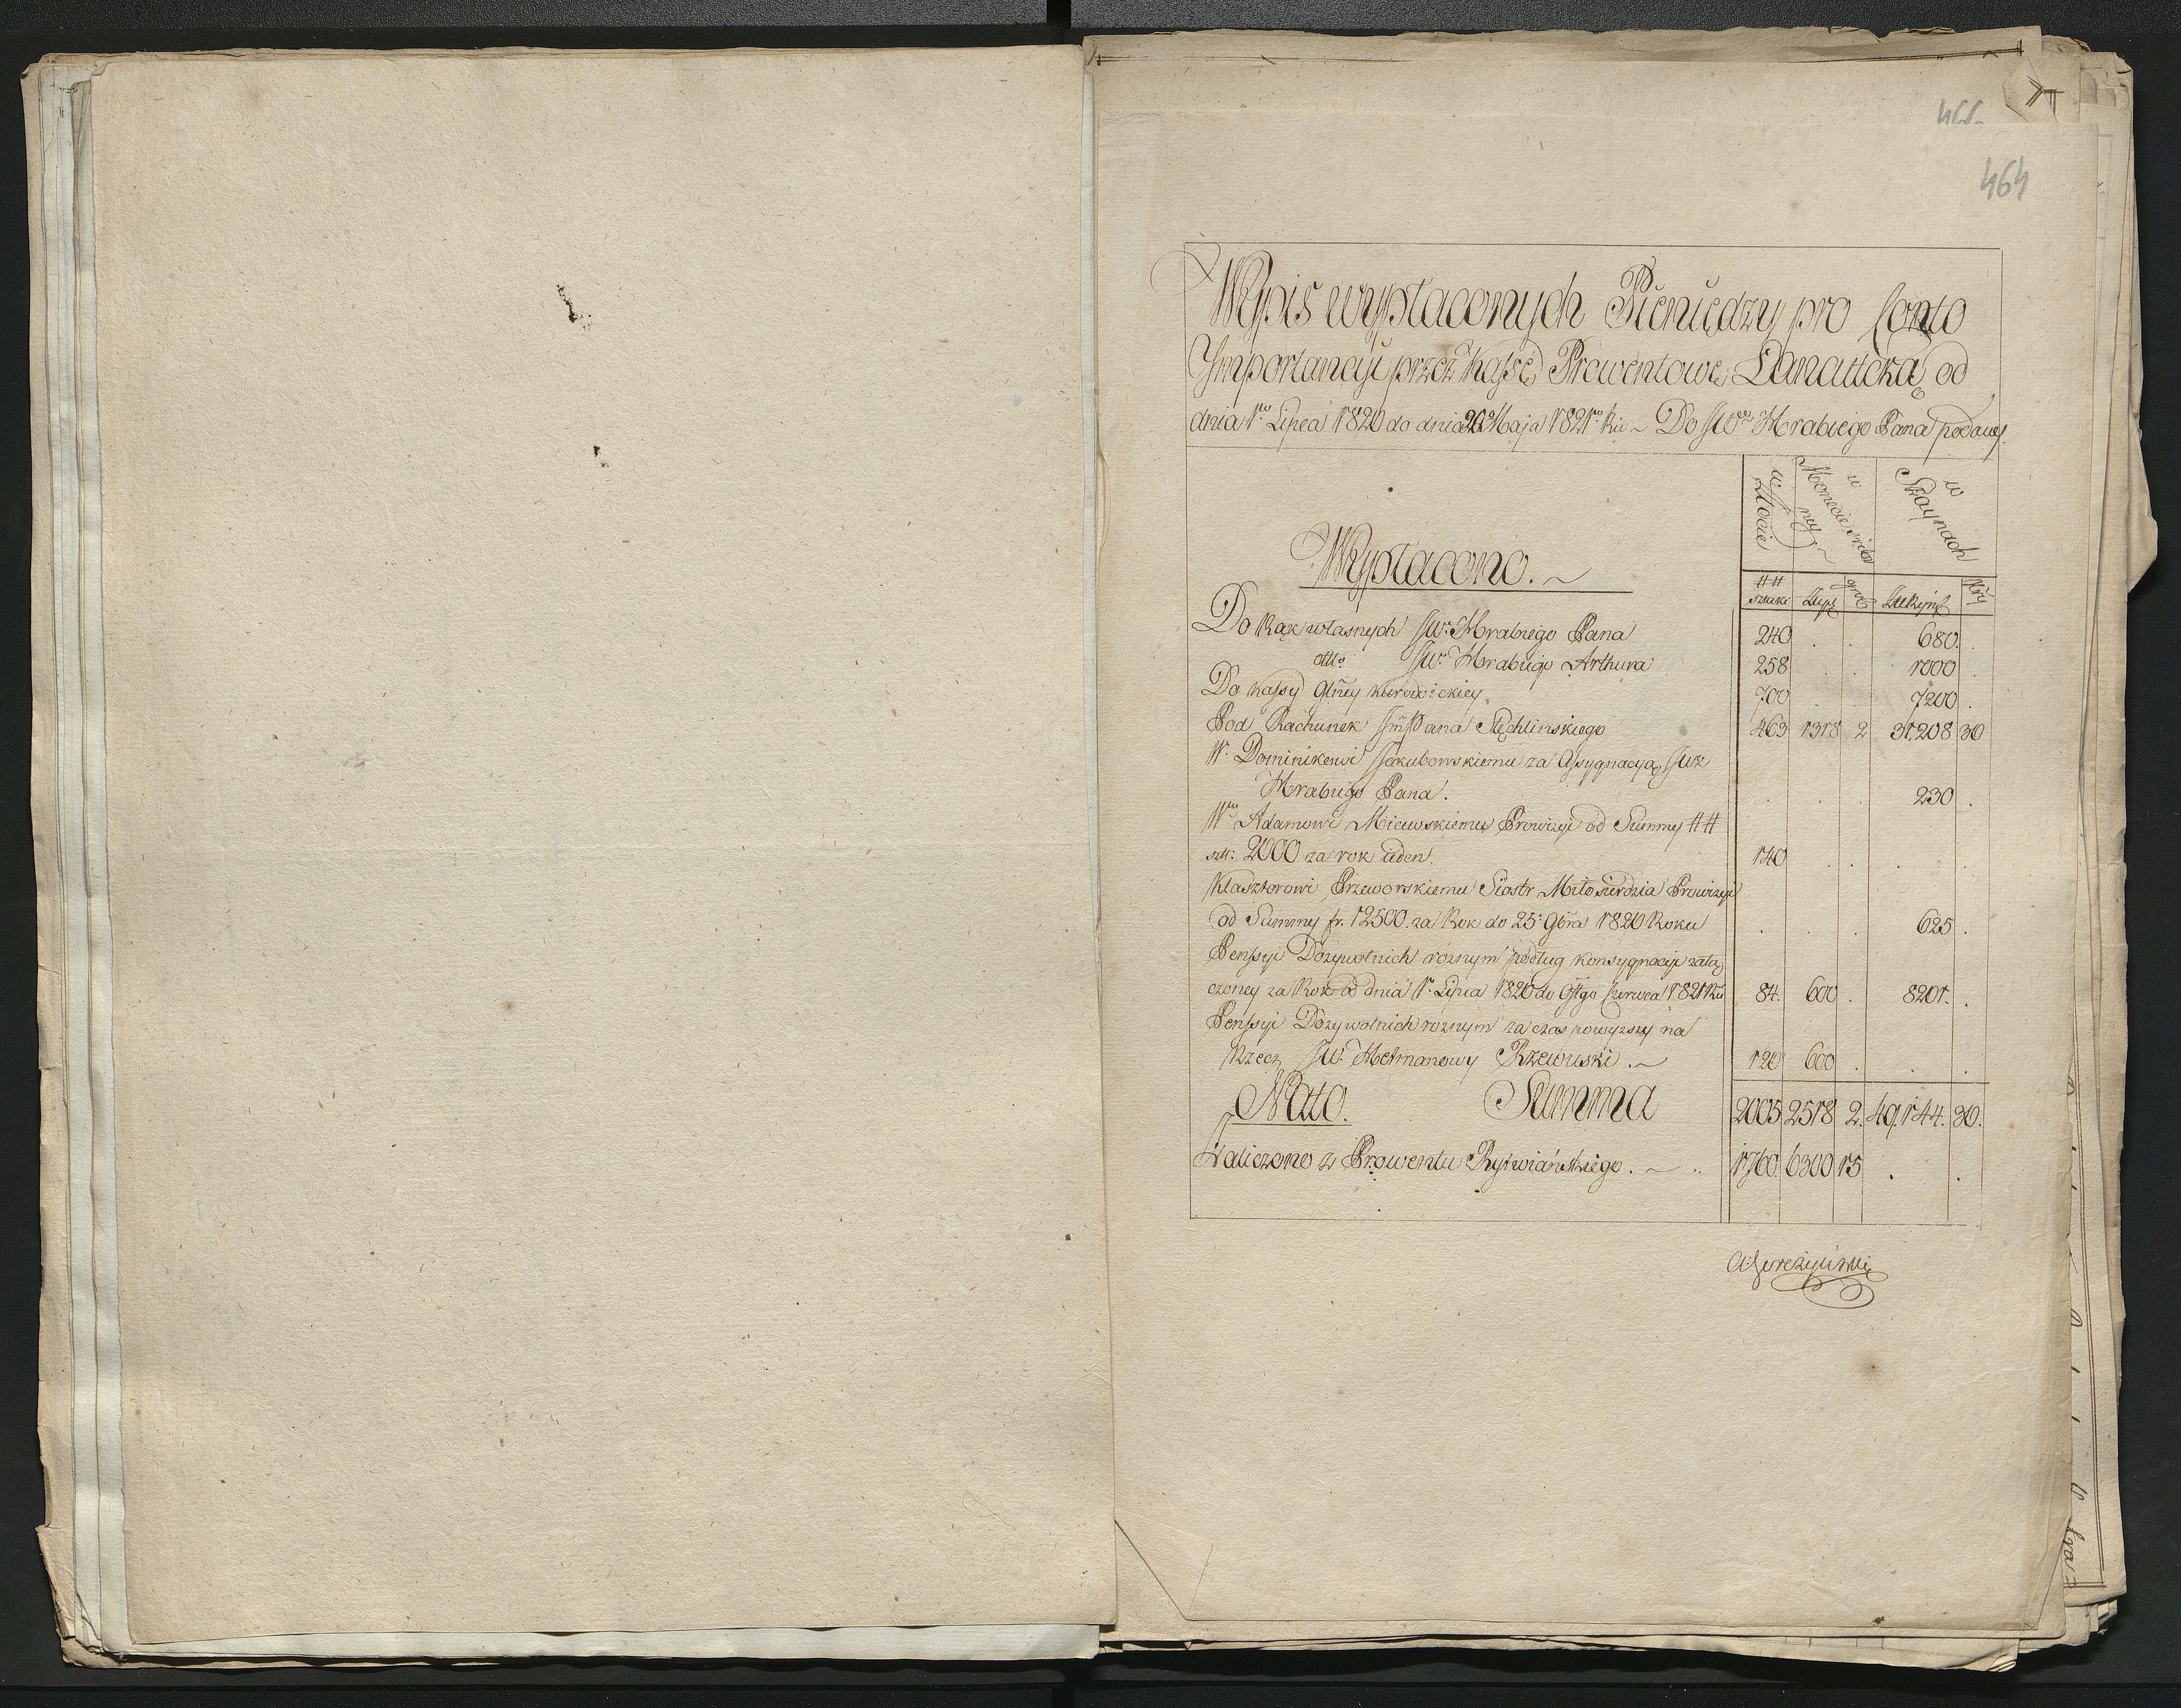 465
464
Wypis wypłaconych Pieniędzy pro Conto
Importancyi przez Kassę Prowentową Łancutcką od
dnia 1go Lipca 1820 do dnia 20 Maja 1821go Ru ~ Do JW Hrabiego Pana podany.
w Złocie
w Monecie śreb
ney ~
w Szaynach
Wypłacono. ~
## sztuki Złp grosz ZłRyńs Kry
Do Rąk własnych JW. Hrabiego Pana 240 . . 680. .
dtto JW. Hrabiego Arthura 258 . . 1000 .
Do Kassy Głney Kurowickiey 700 . . 7200 .
Pod Rachunek Jm Pana Stechlinskiego 463 1318 2 31,208 30
W. Dominikowi Jakubowskiemu za Assygnacyą JW
Hrabiego Pana. . . . 230 .
W. Adamowi Mieewskiemu Prowizyi od Summy ##
szt: 2000 za rok ieden. 140 . . . .
Klasztorowi Przeworskiemu Siostr Miłosierdzia Prowizyi
od Summy fr. 12500. za Rok do 25. 9bra 1820 Roku . . . 625 .
Pensyi Dożywotnich róznym podług konsygnacyi załą
czoney za Rok od dnia 1. Lipca 1820 do Ostgo Czerwca 1821 Ru 84. 600 . 8201. .
Pensyi Dozywotnich roznym za czas powyzszy na
Rzecz JW. Hetmanowy Rzewuski. ~ 120 600 . . .
Nato. Summa 2005 2518 2. 49,144. 30.
Zaliczono z Prowentu Rytwiańskiego. ~ 1760. 6300 15 . .